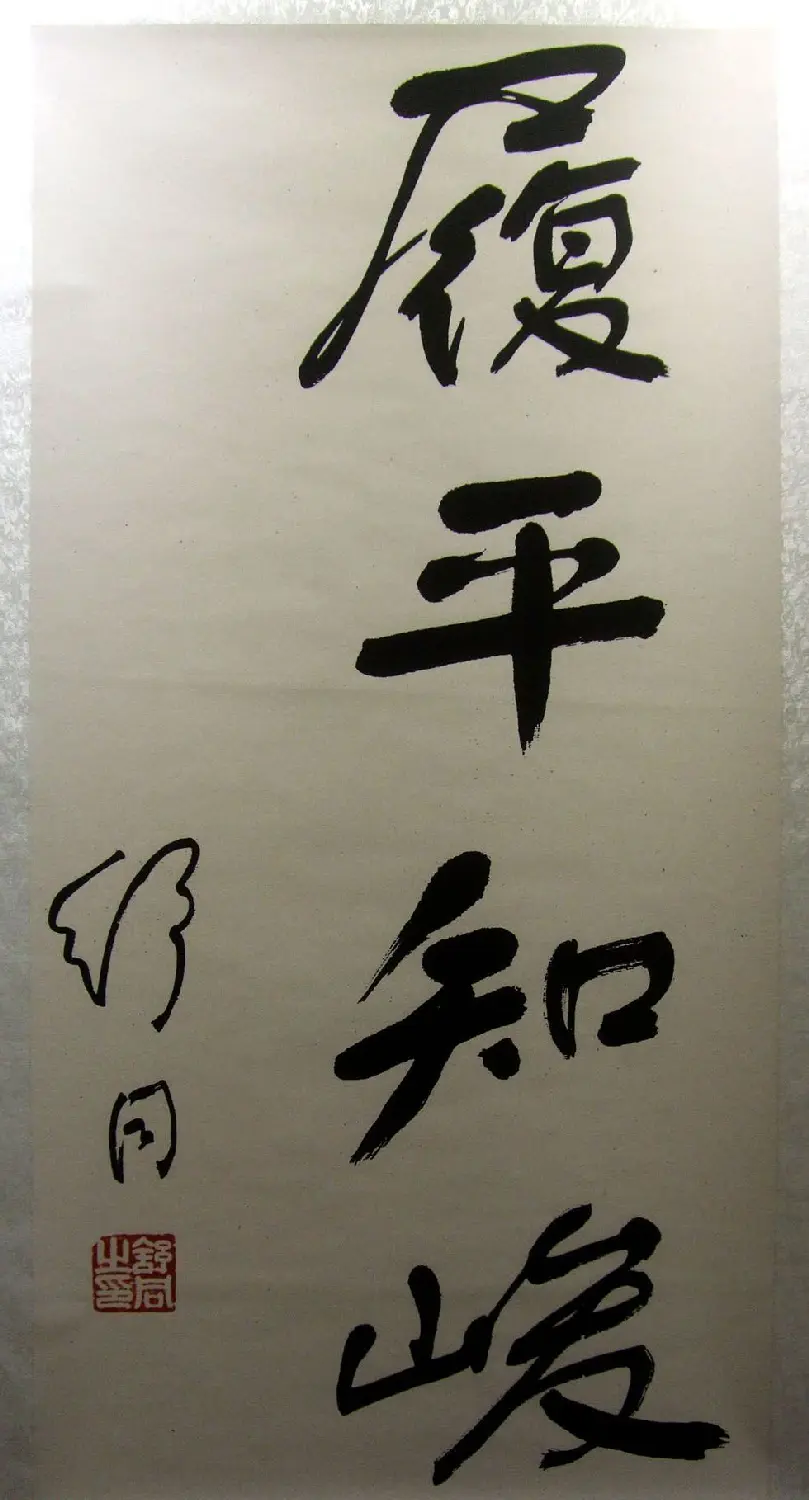 履平知峻
舒同
舒同之印